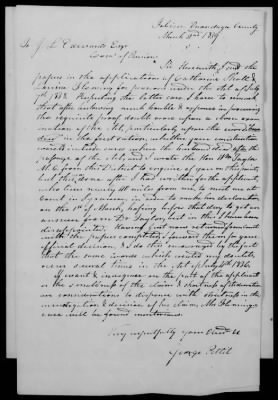 Fabius Onondaga County
March 2nd 1839
To J. L. Edwards Esqr
Comr of Pensions
Sir Herewith, find the
papers in the application of Catharine Shell &
for pensions under the Act of July
7th 1838. Respecting the latter case I have to remark
that after much trouble & expense in procuring
the requisite proof doubt arose upon a close exam-
ination of the Act, particularly upon the words
in the first section, whether your construction
would include cases when the husband died after the
passage of the Act, and I wrote the Hon Wm Taylor
M. C. from this District to enquire of you on this point
but this done after I had written for the applicant,
who lives nearly 40 miles from me, to meet me at
Court in Syracuse, in order to make her declaration
on the 1st of March, hoping before that day to get an
answer from Dr Taylor, but in this I have been
disappointed. Having
with the papers completed I forward them for your
official decision, & I do this encouraged by the fact
that the same words which created my doubts,
occur several times in the Act of July 4th 1836.
If want & on the part of the applicant
or the smallness of the claim &
are considerations to dispense with strictness in the
investigation & decision of the claim, Mrs
case will be found meritorious.
Very respectfully your Obed St
George Pettit